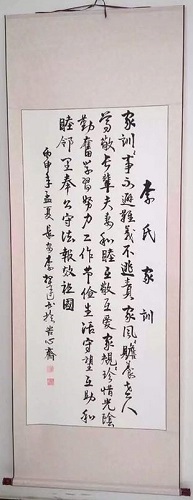 李氏家训
家训：事不避难义不逃责家风：赡养老人
尊敬长辈夫妻和睦互敬互爱家规：珍惜光陰
勤奋学習努力工作节俭生活守望互助和
睦邻里奉公守法報效祖國
丙申年孟夏長安李